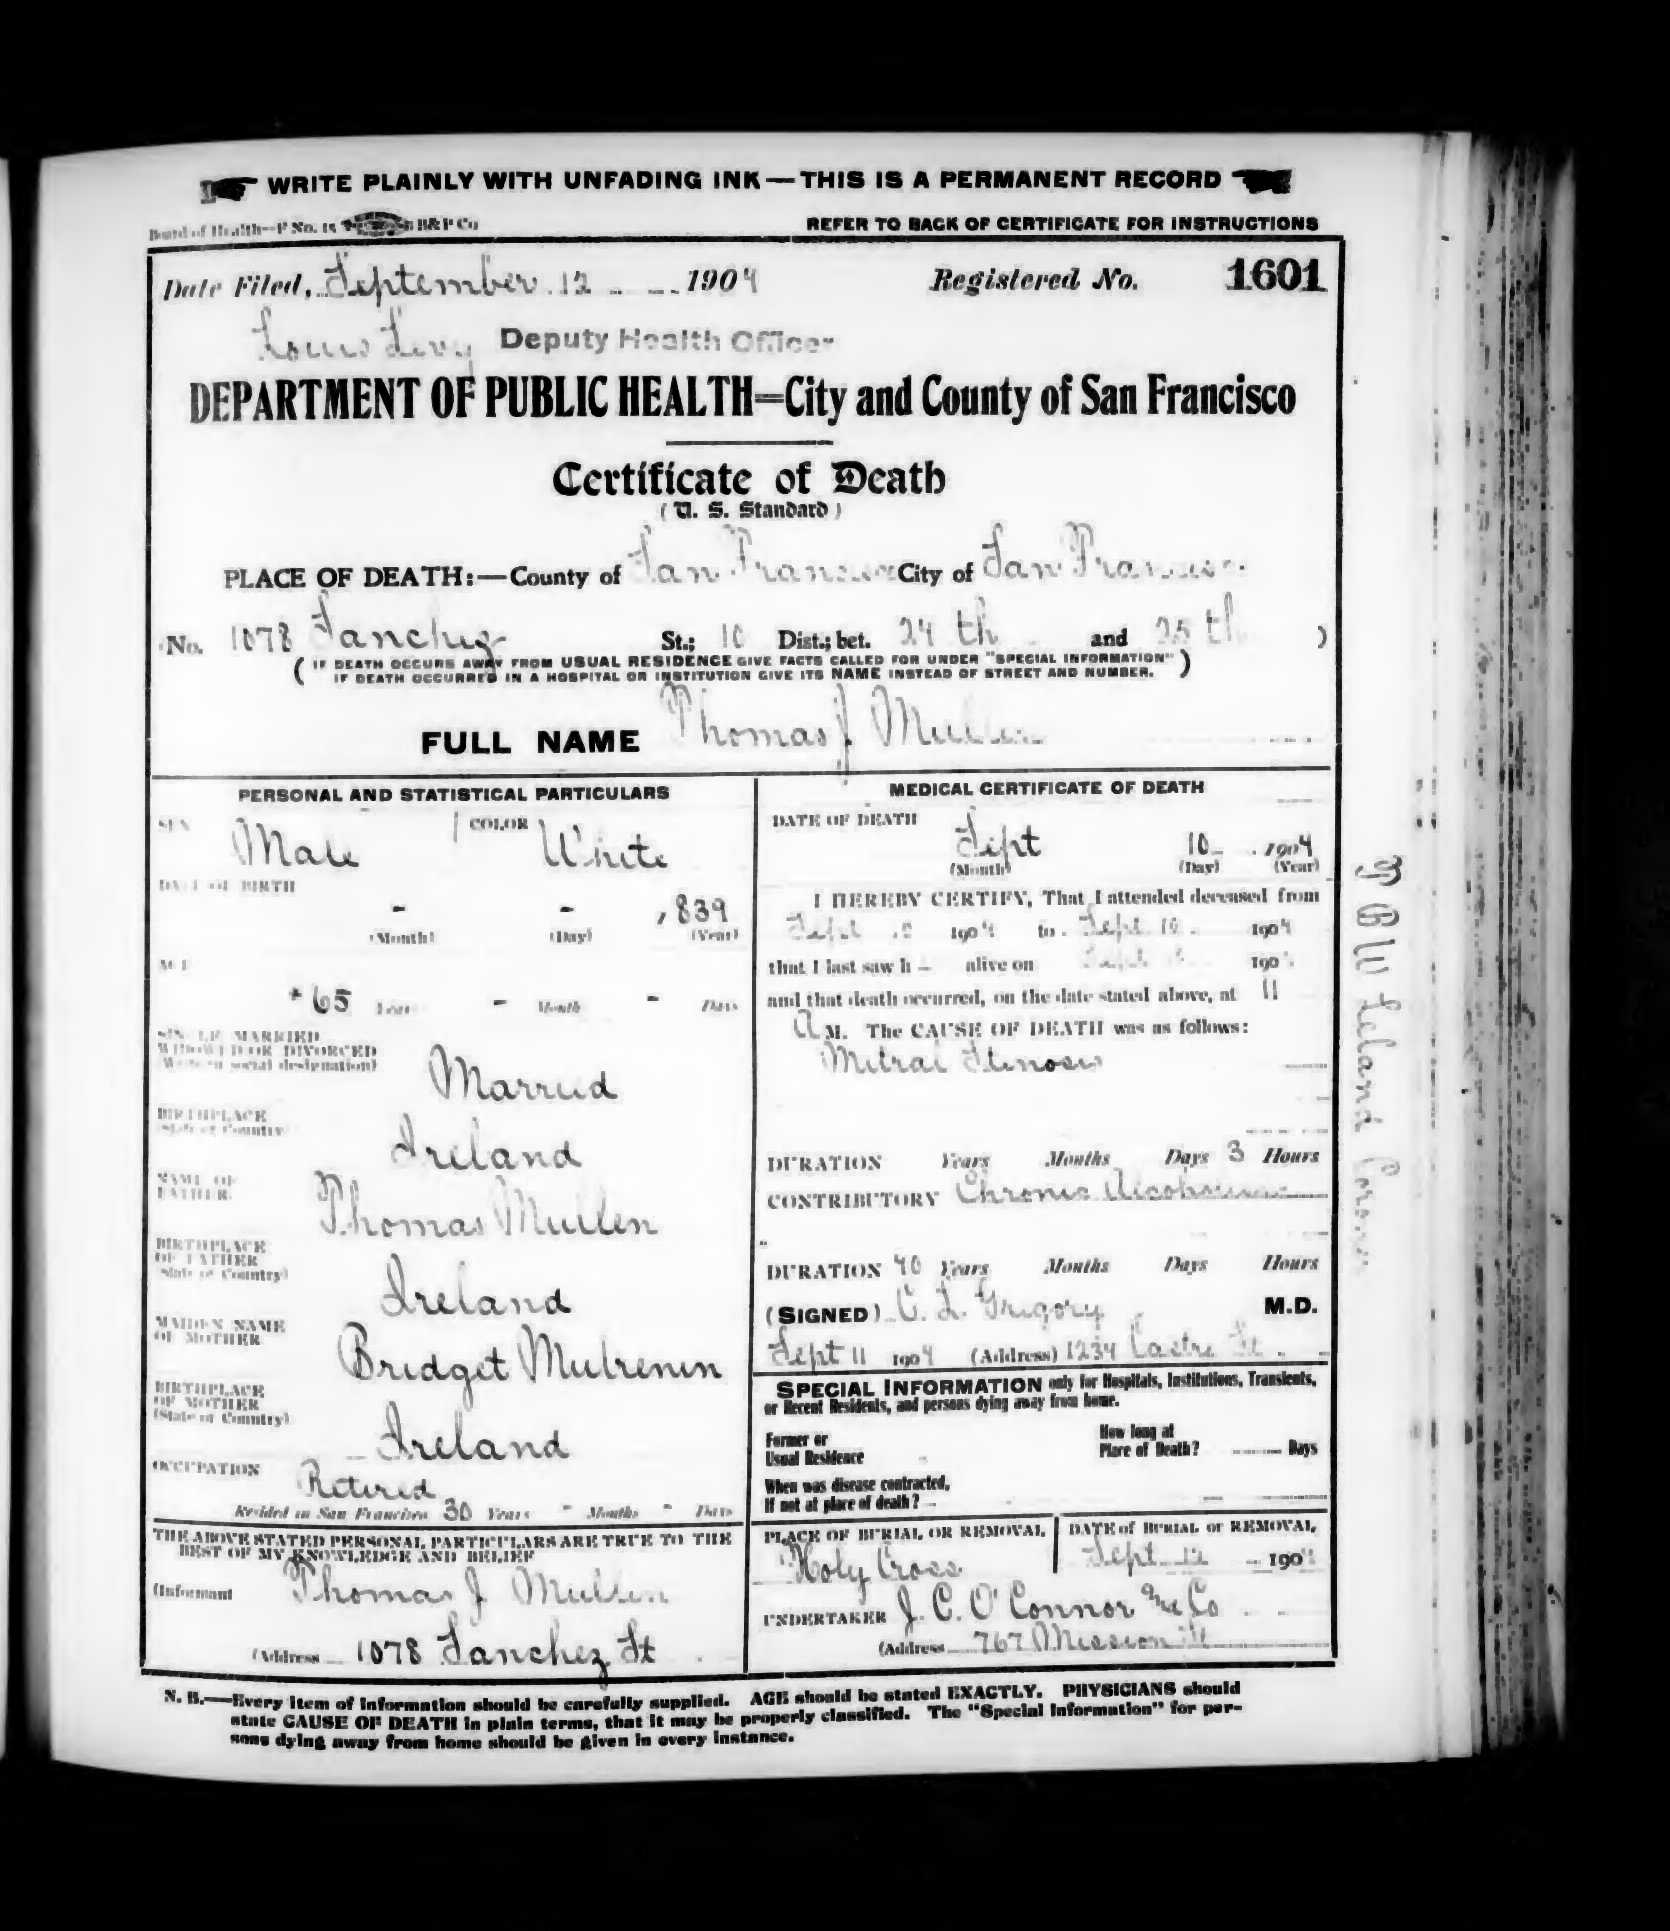 WRITE PLAINLY WITH UNFADING INK—THIS IS A PERMANENT RECORD
Board of Health—F No. 15 B&P Co REFER TO BACK OF CERTIFICATE FOR INSTRUCTIONS
Date Filed, September 12 1904 Registered No. 1601
Louis Levy Deputy Health Officer
DEPARTMENT OF PUBLIC HEALTH=City and County of San Francisco
Certificate of Death
(U. S. Standard)
PLACE OF DEATH:—County of San Francisco City of San Francisco
No. 1078 Sanchez St.; 10 Dist.; bet. 24 th and 25 th )
( IF DEATH OCCURS AWAY FROM USUAL RESIDENCE GIVE FACTS CALLED FOR UNDER "SPECIAL INFORMATION" )
IF DEATH OCCURRED IN A HOSPITAL OR INSTITUTION GIVE ITS NAME INSTEAD OF STREET AND NUMBER.
FULL NAME Thomas J Mullen
PERSONAL AND STATISTICAL PARTICULARS
SEX Male COLOR White
DATE OF BIRTH
- - 1839
(Month) (Day) (Year)
AGE
65 Years - Month - Days
SINGLE MARRIED
WIDOWED OR DIVORCED
(Write in social designation)
Married
BIRTHPLACE
(State or Country)
Ireland
NAME OF
FATHER
Thomas Mullen
BIRTHPLACE
OF FATHER
(State or Country)
Ireland
MAIDEN NAME
OF MOTHER
Bridget Mulrenin
BIRTHPLACE
OF MOTHER
(State or Country)
Ireland
OCCUPATION
Retired
Resided in San Francisco 30 Years - Months - Days
THE ABOVE STATED PERSONAL PARTICULARS ARE TRUE TO THE
BEST OF MY KNOWLEDGE AND BELIEF
(Informant Thomas J Mullen
(Address 1078 Sanchez St
MEDICAL CERTIFICATE OF DEATH
DATE OF DEATH
Sept 10 1904
(Month) (Day) (Year)
I HEREBY CERTIFY, That I attended deceased from
Sept 10 1904 to Sept 10 1904
that I last saw h - alive on Sept 190
and that death occurred, on the date stated above, at 11
A M. The CAUSE OF DEATH was as follows:
Mitral Stenosis
DURATION Years Months Days 3 Hours
CONTRIBUTORY Chronic Alcoholism
DURATION 40 Years Months Days Hours
(SIGNED) C. L. Gregory M.D.
Sept 11 1904 (Address) 1234 Castro St
SPECIAL INFORMATION only for Hospitals, Institutions, Transients,
or Recent Residents, and persons dying away from home.
Former or
Usual Residence
How long at
Place of Death? Days
When was disease contracted,
If not at place of death?
PLACE OF BURIAL OR REMOVAL
Holy Cross
DATE of BURIAL or REMOVAL
Sept 12 1904
UNDERTAKER J. C. O'Connor and Co
(Address 767 Mission St
N. B.—Every item of information should be carefully supplied. AGE should be stated EXACTLY. PHYSICIANS should
state CAUSE OF DEATH in plain terms, that it may be properly classified. The "Special Information" for per-
sons dying away from home should be given in every instance.
Leland Coroner